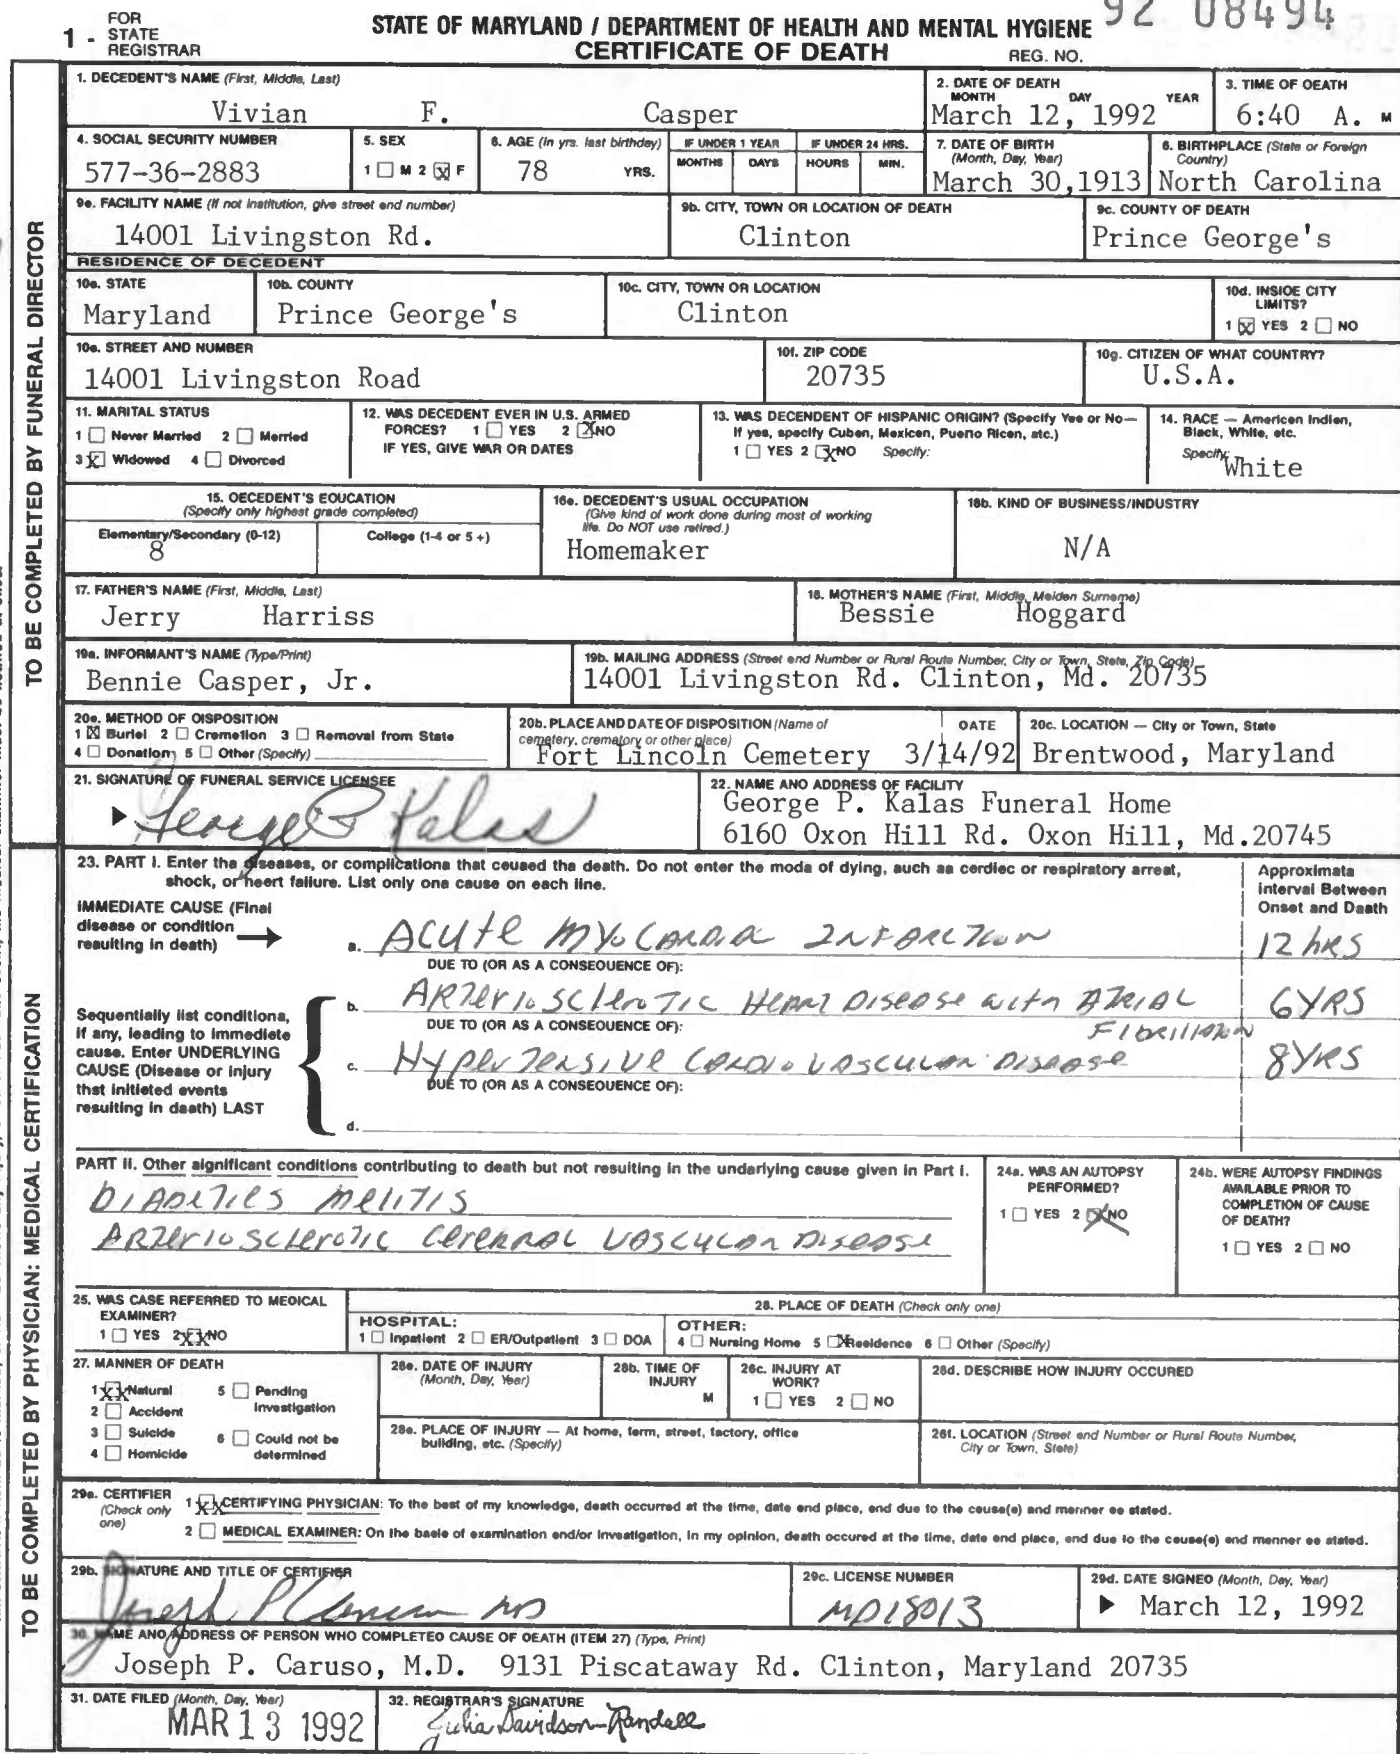 1 - FOR STATE REGISTRAR
STATE OF MARYLAND / DEPARTMENT OF HEALTH AND MENTAL HYGIENE 92 08494
CERTIFICATE OF DEATH REG. NO.
TO BE COMPLETED BY FUNERAL DIRECTOR
1. DECEDENT'S NAME (First, Middle, Last)
Vivian F. Casper
2. DATE OF DEATH
MONTH DAY YEAR
March 12, 1992
3. TIME OF DEATH
6:40 A. M
4. SOCIAL SECURITY NUMBER
577-36-2883
5. SEX
1 ☐ M 2 ☒ F
6. AGE (In yrs. last birthday)
78 YRS.
IF UNDER 1 YEAR
MONTHS DAYS
IF UNDER 24 HRS.
HOURS MIN.
7. DATE OF BIRTH
(Month, Day, Year)
March 30,1913
8. BIRTHPLACE (State or Foreign Country)
North Carolina
9a. FACILITY NAME (If not institution, give street and number)
14001 Livingston Rd.
9b. CITY, TOWN OR LOCATION OF DEATH
Clinton
9c. COUNTY OF DEATH
Prince George's
RESIDENCE OF DECEDENT
10a. STATE
Maryland
10b. COUNTY
Prince George's
10c. CITY, TOWN OR LOCATION
Clinton
10d. INSIDE CITY LIMITS?
1 ☒ YES 2 ☐ NO
10e. STREET AND NUMBER
14001 Livingston Road
10f. ZIP CODE
20735
10g. CITIZEN OF WHAT COUNTRY?
U.S.A.
11. MARITAL STATUS
1 ☐ Never Married 2 ☐ Married
3 ☒ Widowed 4 ☐ Divorced
12. WAS DECEDENT EVER IN U.S. ARMED
FORCES? 1 ☐ YES 2 ☒ NO
IF YES, GIVE WAR OR DATES
13. WAS DECENDENT OF HISPANIC ORIGIN? (Specify Yes or No—
If yes, specify Cuban, Mexican, Puerto Rican, etc.)
1 ☐ YES 2 ☒ NO Specify:
14. RACE — American Indian,
Black, White, etc.
Specify: White
15. DECEDENT'S EDUCATION
(Specify only highest grade completed)
Elementary/Secondary (0-12) College (1-4 or 5+)
8
16a. DECEDENT'S USUAL OCCUPATION
(Give kind of work done during most of working
life. Do NOT use retired.)
Homemaker
16b. KIND OF BUSINESS/INDUSTRY
N/A
17. FATHER'S NAME (First, Middle, Last)
Jerry Harriss
18. MOTHER'S NAME (First, Middle, Maiden Surname)
Bessie Hoggard
19a. INFORMANT'S NAME (Type/Print)
Bennie Casper, Jr.
19b. MAILING ADDRESS (Street and Number or Rural Route Number, City or Town, State, Zip Code)
14001 Livingston Rd. Clinton, Md. 20735
20a. METHOD OF DISPOSITION
1 ☒ Burial 2 ☐ Cremation 3 ☐ Removal from State
4 ☐ Donation 5 ☐ Other (Specify)
20b. PLACE AND DATE OF DISPOSITION (Name of DATE
cemetery, crematory or other place)
Fort Lincoln Cemetery 3/14/92
20c. LOCATION — City or Town, State
Brentwood, Maryland
21. SIGNATURE OF FUNERAL SERVICE LICENSEE
George P Kalas
22. NAME AND ADDRESS OF FACILITY
George P. Kalas Funeral Home
6160 Oxon Hill Rd. Oxon Hill, Md.20745
TO BE COMPLETED BY PHYSICIAN: MEDICAL CERTIFICATION
23. PART I. Enter the diseases, or complications that caused the death. Do not enter the mode of dying, such as cardiac or respiratory arrest,
shock, or heart failure. List only one cause on each line.
Approximate
Interval Between
Onset and Death
IMMEDIATE CAUSE (Final
disease or condition
resulting in death)
a. Acute myocardia Infarction 12 hrs
DUE TO (OR AS A CONSEQUENCE OF):
Sequentially list conditions,
if any, leading to immediate
cause. Enter UNDERLYING
CAUSE (Disease or injury
that initiated events
resulting in death) LAST
b. Arteriosclerotic Heart Disease with Atrial Fibrillation 6 YRS
DUE TO (OR AS A CONSEQUENCE OF):
c. Hypertensive Cardiovascular Disease 8 YRS
DUE TO (OR AS A CONSEQUENCE OF):
d.
PART II. Other significant conditions contributing to death but not resulting in the underlying cause given in Part I.
Diabeties Melitis
Arteriosclerotic Cerebral Vascular Disease
24a. WAS AN AUTOPSY
PERFORMED?
1 ☐ YES 2 ☒ NO
24b. WERE AUTOPSY FINDINGS
AVAILABLE PRIOR TO
COMPLETION OF CAUSE
OF DEATH?
1 ☐ YES 2 ☐ NO
25. WAS CASE REFERRED TO MEDICAL
EXAMINER?
1 ☐ YES 2 ☒ NO
26. PLACE OF DEATH (Check only one)
HOSPITAL:
1 ☐ Inpatient 2 ☐ ER/Outpatient 3 ☐ DOA
OTHER:
4 ☐ Nursing Home 5 ☒ Residence 6 ☐ Other (Specify)
27. MANNER OF DEATH
1 ☒ Natural 5 ☐ Pending Investigation
2 ☐ Accident
3 ☐ Suicide 6 ☐ Could not be determined
4 ☐ Homicide
28a. DATE OF INJURY
(Month, Day, Year)
28b. TIME OF INJURY
M
28c. INJURY AT WORK?
1 ☐ YES 2 ☐ NO
28d. DESCRIBE HOW INJURY OCCURED
28e. PLACE OF INJURY — At home, farm, street, factory, office
building, etc. (Specify)
28f. LOCATION (Street and Number or Rural Route Number,
City or Town, State)
29a. CERTIFIER
(Check only one)
1 ☒ CERTIFYING PHYSICIAN: To the best of my knowledge, death occurred at the time, date and place, and due to the cause(s) and manner as stated.
2 ☐ MEDICAL EXAMINER: On the basis of examination and/or investigation, in my opinion, death occured at the time, date and place, and due to the cause(s) and manner as stated.
29b. SIGNATURE AND TITLE OF CERTIFIER
Joseph P Caruso MD
29c. LICENSE NUMBER
MD18013
29d. DATE SIGNED (Month, Day, Year)
March 12, 1992
30. NAME AND ADDRESS OF PERSON WHO COMPLETED CAUSE OF DEATH (ITEM 27) (Type, Print)
Joseph P. Caruso, M.D. 9131 Piscataway Rd. Clinton, Maryland 20735
31. DATE FILED (Month, Day, Year)
MAR 13 1992
32. REGISTRAR'S SIGNATURE
Julia Davidson-Randall